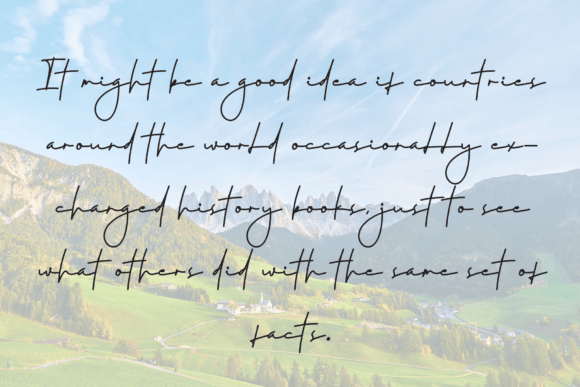 It might be a good idea if countries
around the world occasionally ex-
changed history books, just to see
what others did with the same set of
facts.